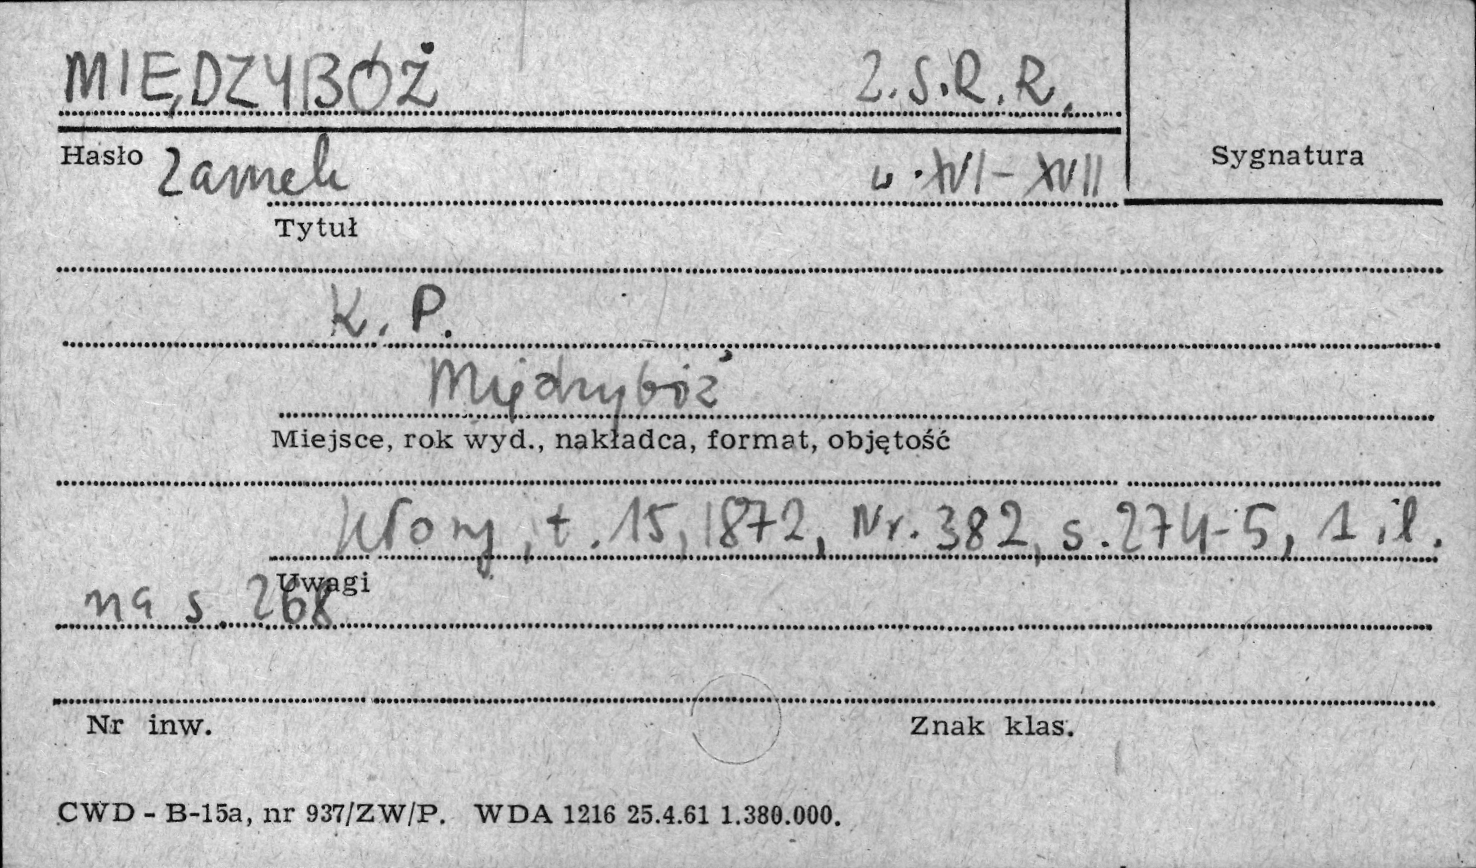 MIĘDZYBÓŻ Z.S.R.R.
Hasło Zamek w. XVI-XVII Sygnatura
Tytuł
K. P.
Międzybóż
Miejsce, rok wyd., nakładca, format, objętość
Kłosy, t. 15, 1872, Nr. 382, s. 274-5, 1 il.
Uwagi
na s. 268
Nr inw. Znak klas.
CWD - B-15a, nr 937/ZW/P. WDA 1216 25.4.61 1.380.000.